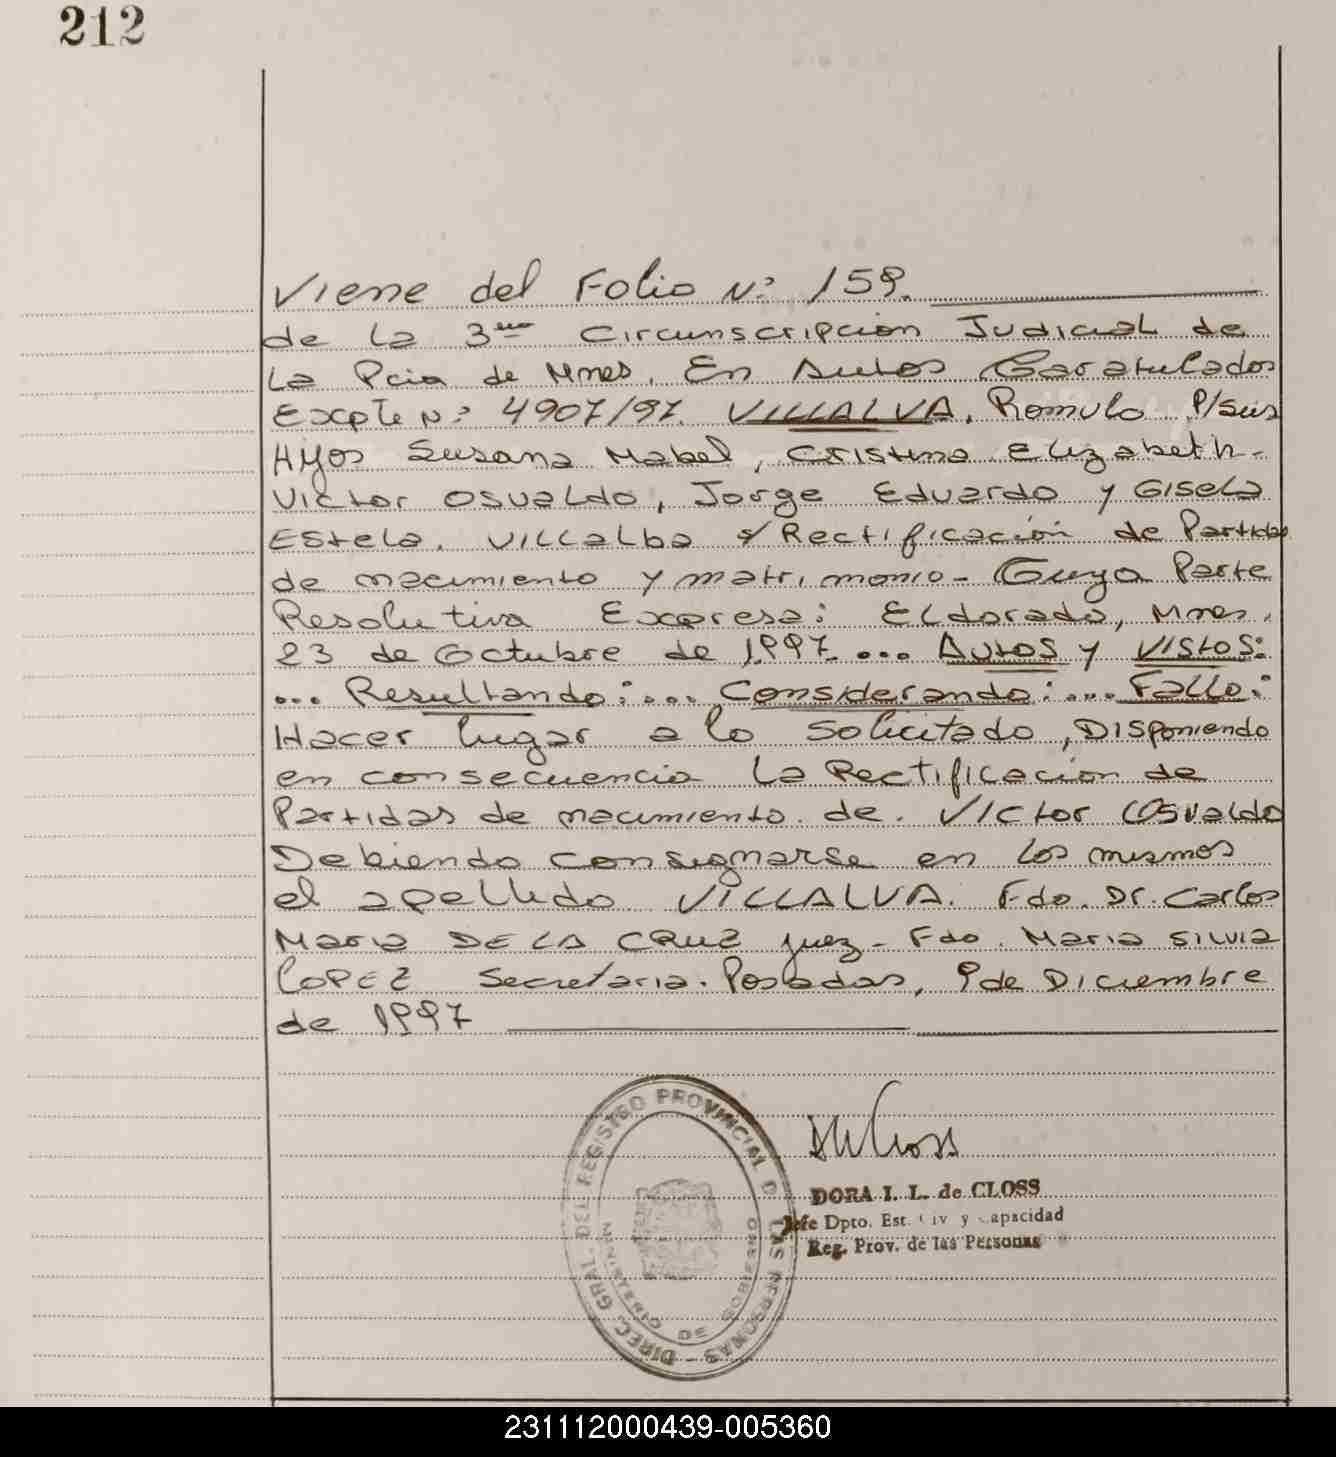 212
Viene del Folio Nº 159.
de la 3era Circunscripción Judicial de
la Pcia de Mnes. En Autos Caratulados
Expte Nº 4907/97. VILLALVA, Romulo P/sus
Hijos Susana Mabel, Cristina Elizabeth-
Victor Osvaldo, Jorge Eduardo y Gisela
Estela. Villalba s/Rectificación de Partidas
de nacimiento y matrimonio- Cuya Parte
Resolutiva Expresa: Eldorado, Mnes,
23 de Octubre de 1997... Autos y Vistos:
... Resultando:... Considerando:... Fallo:
Hacer lugar a lo solicitado, Disponiendo
en consecuencia la Rectificación de
Partidas de nacimiento de. Victor Osvaldo
Debiendo consignarse en los mismos
el apellido VILLALVA. Fdo. Dr. Carlos
Maria DE LA CRUZ Juez- Fdo. Maria Silvia
LOPEZ Secretaria. Posadas, 9 de Diciembre
de 1997
DIREC. GRAL. DEL REGISTRO PROVINCIAL D LAS PERSONAS
MINISTERIO DE GOBIERNO
DORA I. L. de CLOSS
Jefe Dpto. Est. Civ y Capacidad
Reg. Prov. de las Personas
231112000439-005360